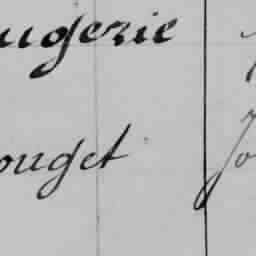 ugerie
ouget